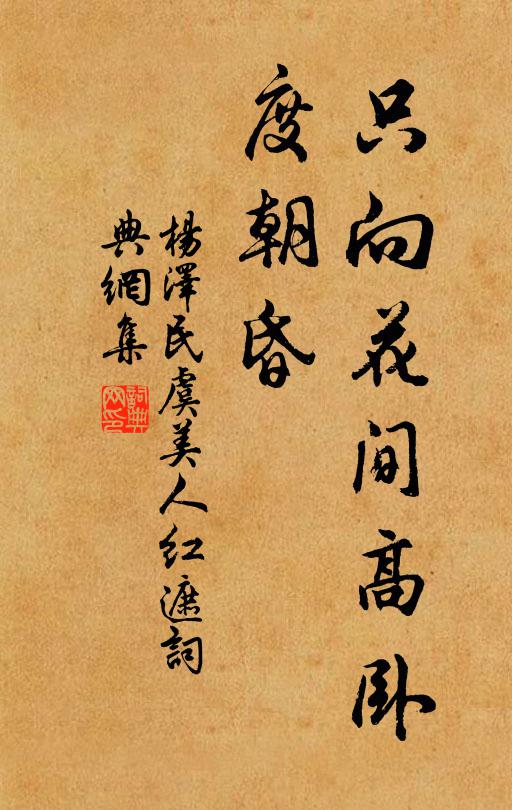 只向花间高卧
度朝昏
杨泽民虞美人红遮词
典网集
词典
网印